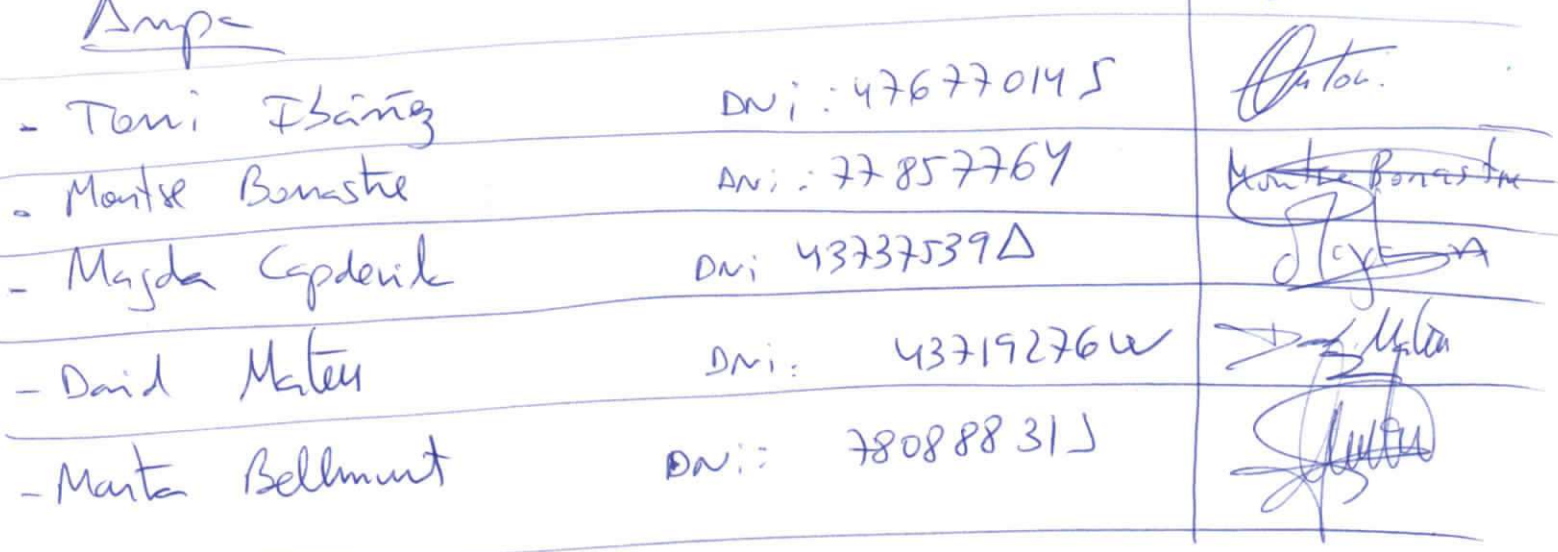 Ampa
- Toni Ibáñez DNi: 47677014S Antoni
- Montse Bonastre DNi: 77857764 Montse Bonastre
- Magda Capdevila DNi 43737539A
- David Mateu DNi: 43719276W David Mateu
- Marta Bellmunt DNi: 78088831J